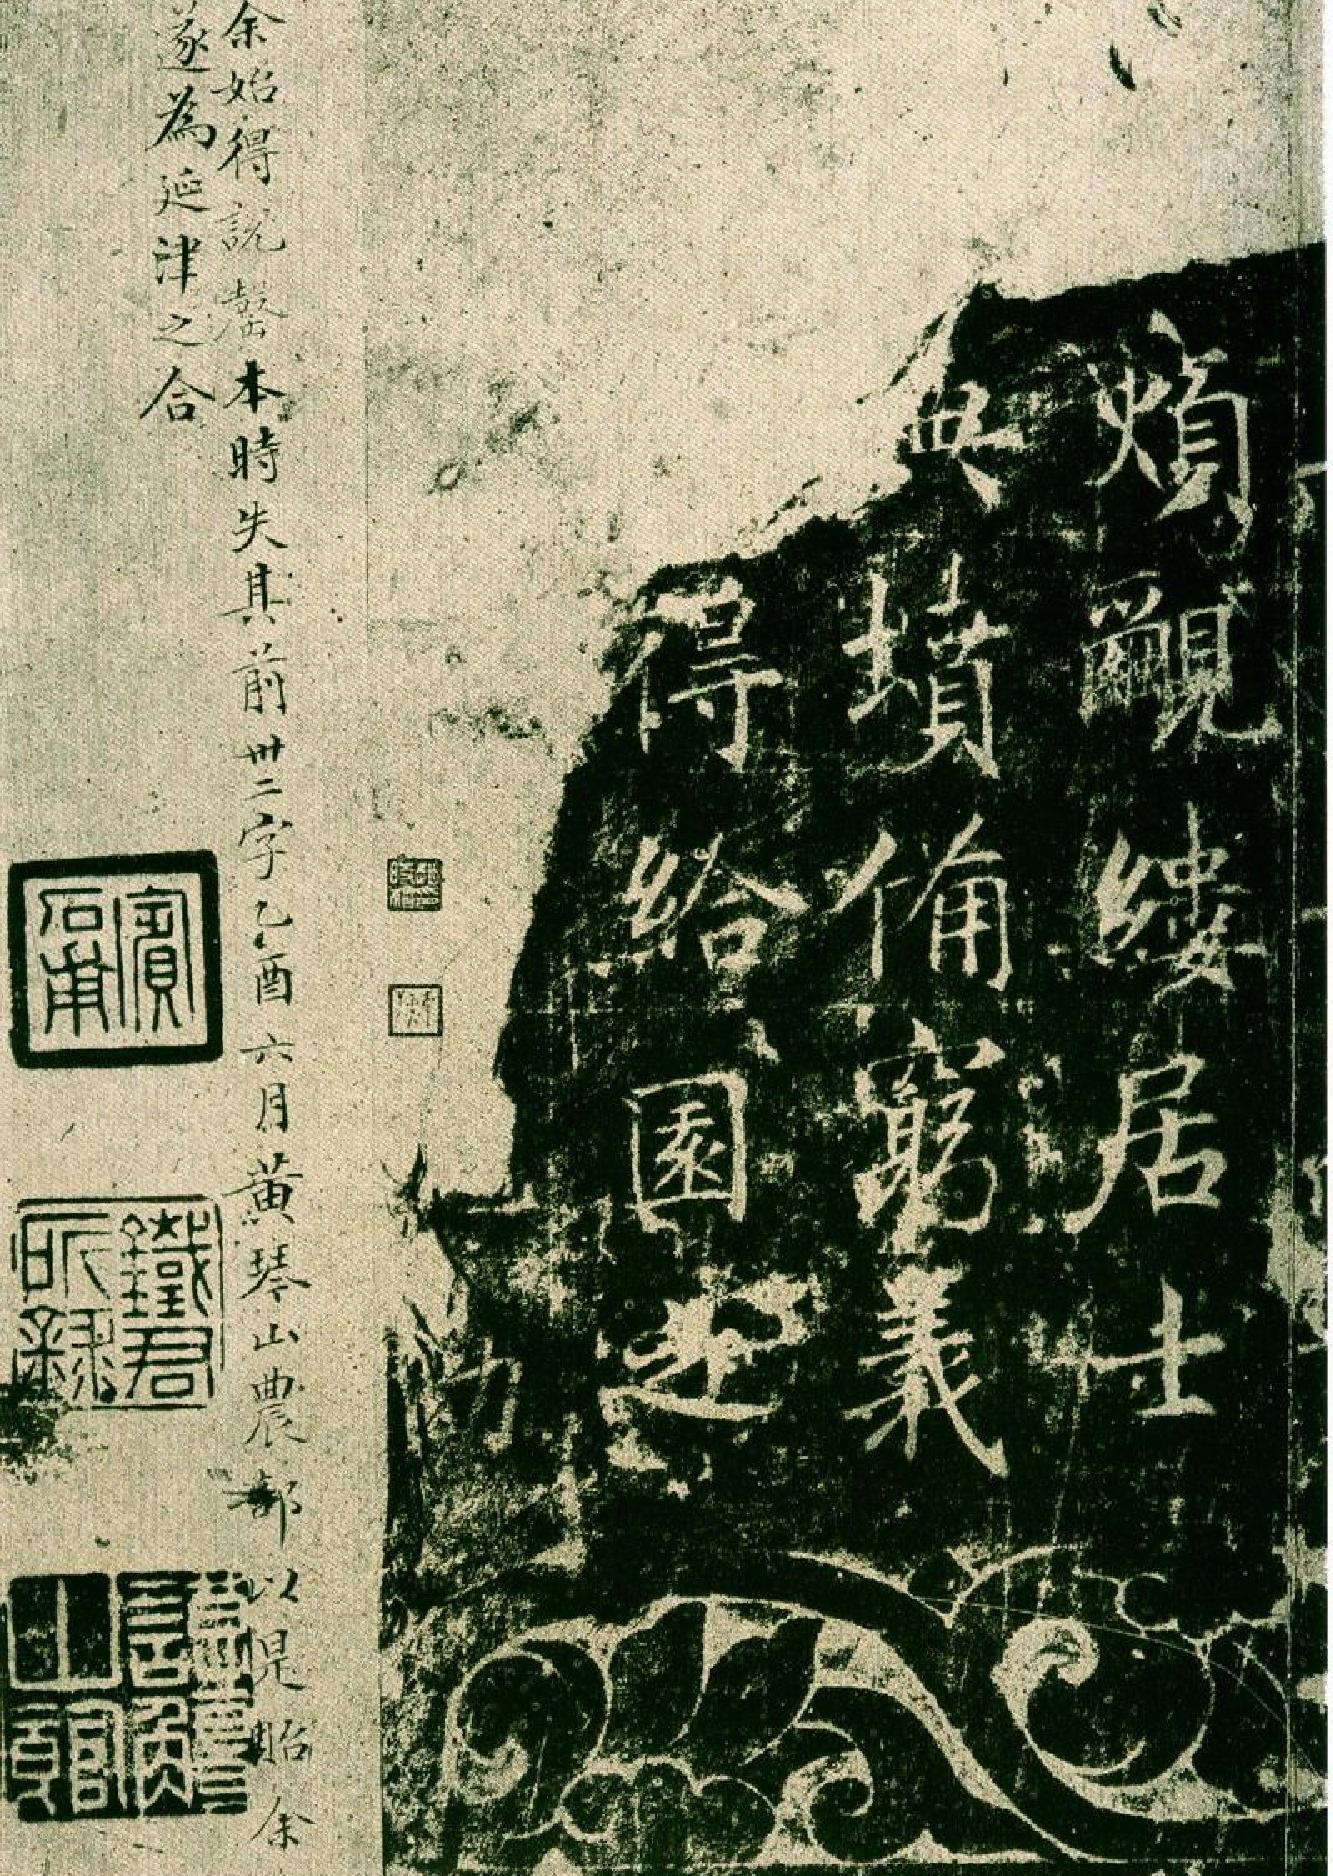 煩覼縷居士
典墳備窮義
得給園之
力
余始得說罄本時失其前卅二字乙酉六月黃琴山農部以是貽余
遂為延津之合
賓石甫
鐵君所錄
山館